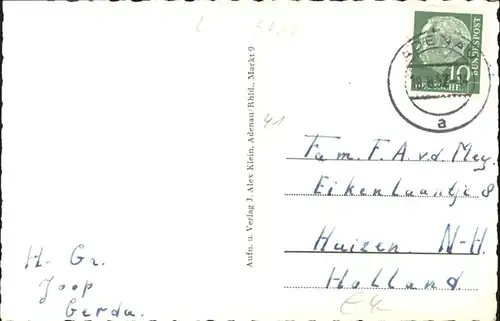 Aufn. u. Verlag J. Alex Klein, Adenau/Rhld., Markt 9
ADENAU
a
DEUTSCHE
BUNDESPOST
10
41
Fam. F. A. v.d. Mey.
Eikenlaantje 8
Huizen. N-H.
Holland.
H. Gr.
Joop
Gerda.